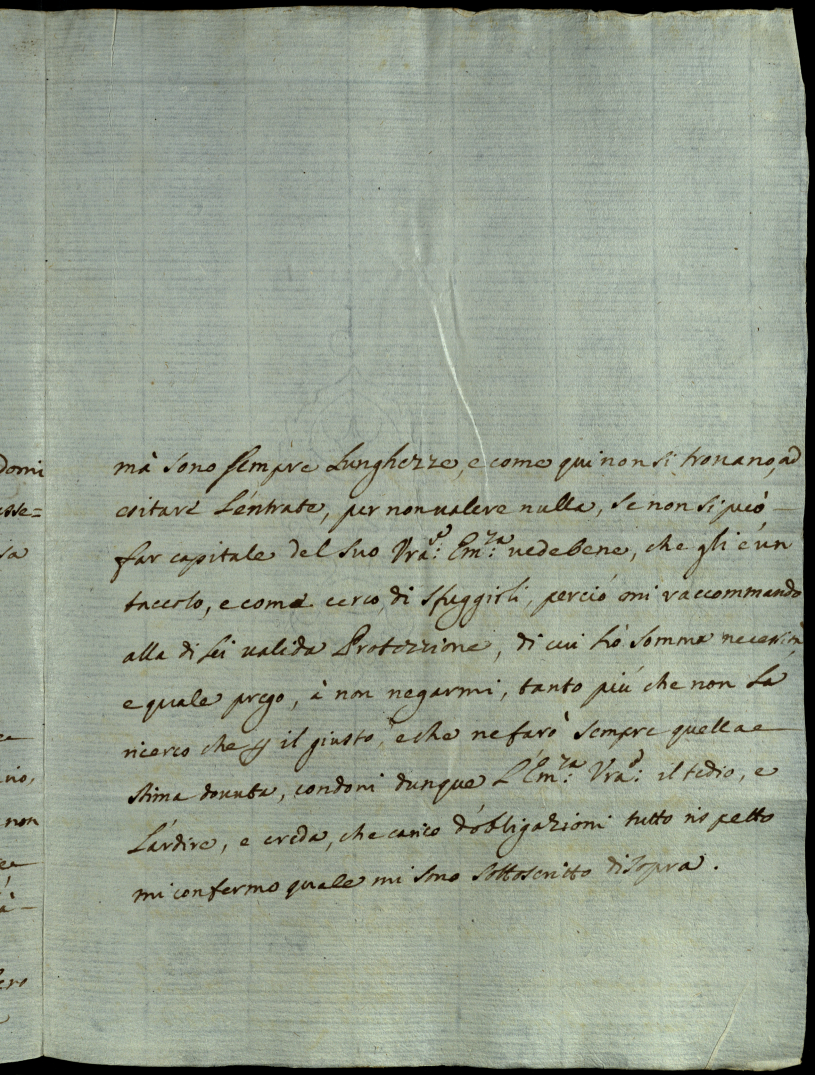 domi
asse=
sa
no,
non
mà sono sempre Lunghezze, e come qui non si trouano, ad
esitare L'entrate, per non ualere nulla, se non si può
far capitale del suo Vra: Em:za uede bene, che gli è un
taccolo, e come cerco, di sfuggirli, perciò mi raccommando
alla di Lei ualida Protezzione, di cui hò somma necessità,
e quale prego, à non negarmi, tanto più che non La
ricerco che p il giusto, e che ne farò sempre quella e
stima douuta, condoni dunque L'Em:za Vra: il tedio, e
L'ardire, e creda, che carico d'obligazioni tutto rispetto
mi confermo quale mi sono sottoscritto disopra.